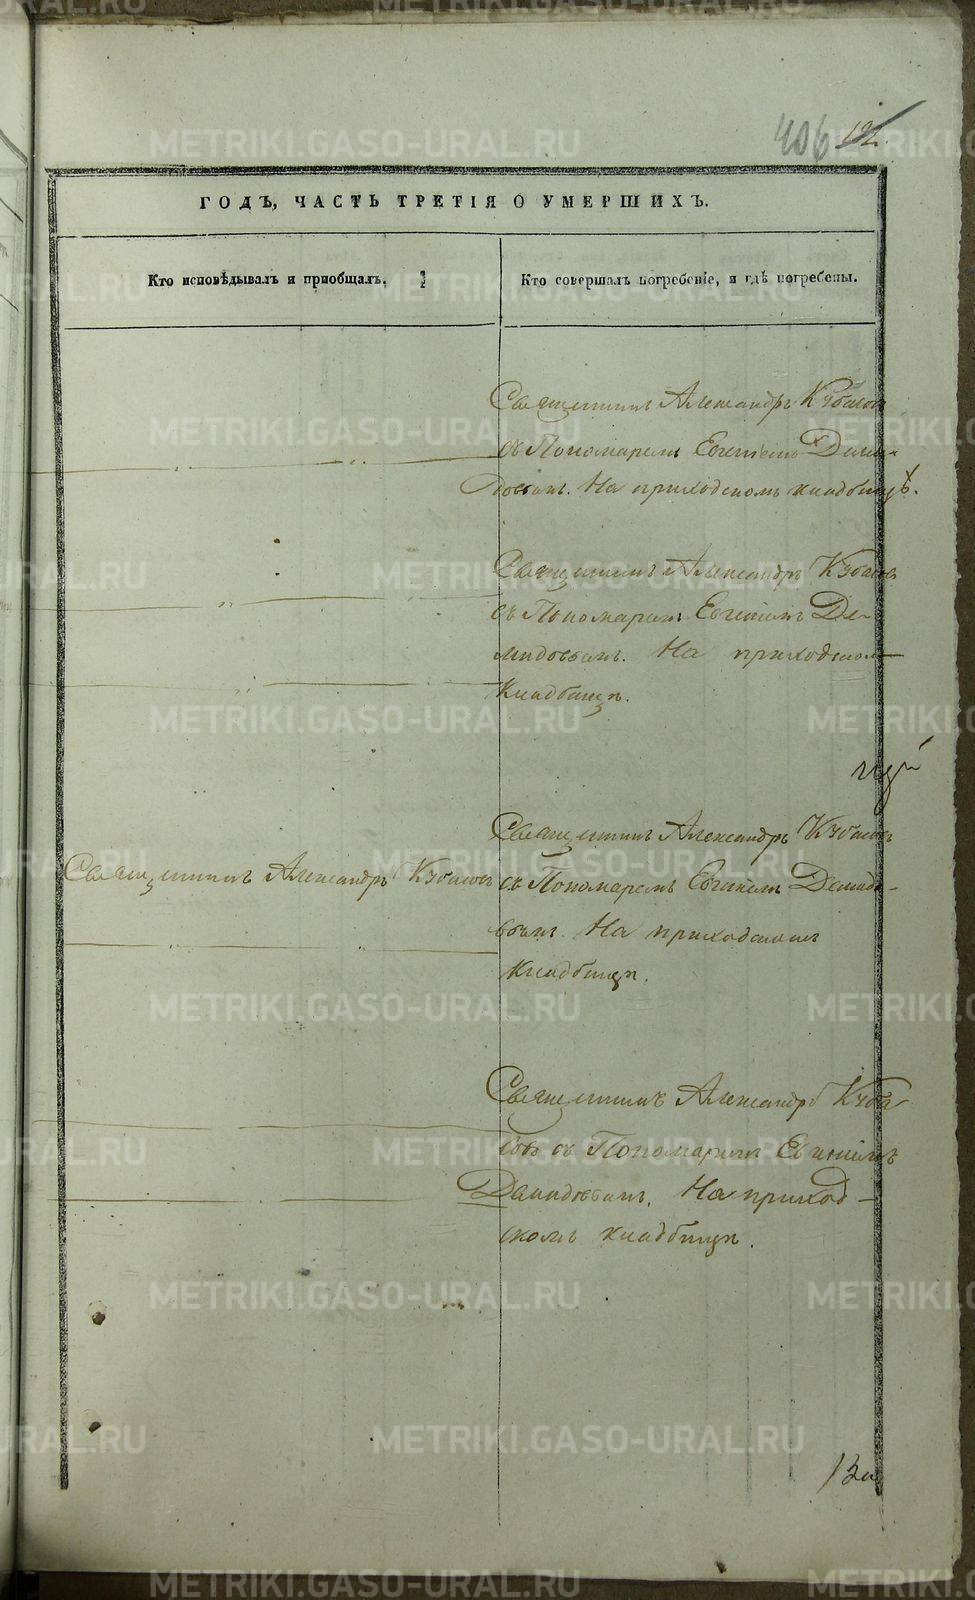 406 12
ГОДЪ, ЧАСТЬ ТРЕТІЯ О УМЕРШИХЪ.
Кто исповѣдывалъ и пріобщалъ.
Кто совершалъ погребеніе, и гдѣ погребены.
Священникъ Александръ Кубасовъ
съ Пономаремъ Евгеніемъ Деми-
довымъ. На приходскомъ кладбищѣ.
Священникъ Александръ Кубасовъ
съ Пономаремъ Евгеніемъ Де-
мидовымъ. На приходскомъ
кладбищѣ.
Священникъ Александръ Кубасовъ
Священникъ Александръ Кубасовъ
съ Пономаремъ Евгеніемъ Демидо-
вымъ. На приходскомъ
кладбищѣ.
Священникъ Александръ Куба
совъ съ Пономаремъ Евгеніемъ
Демидовымъ. На приход-
скомъ кладбищѣ.
METRIKI.GASO-URAL.RU